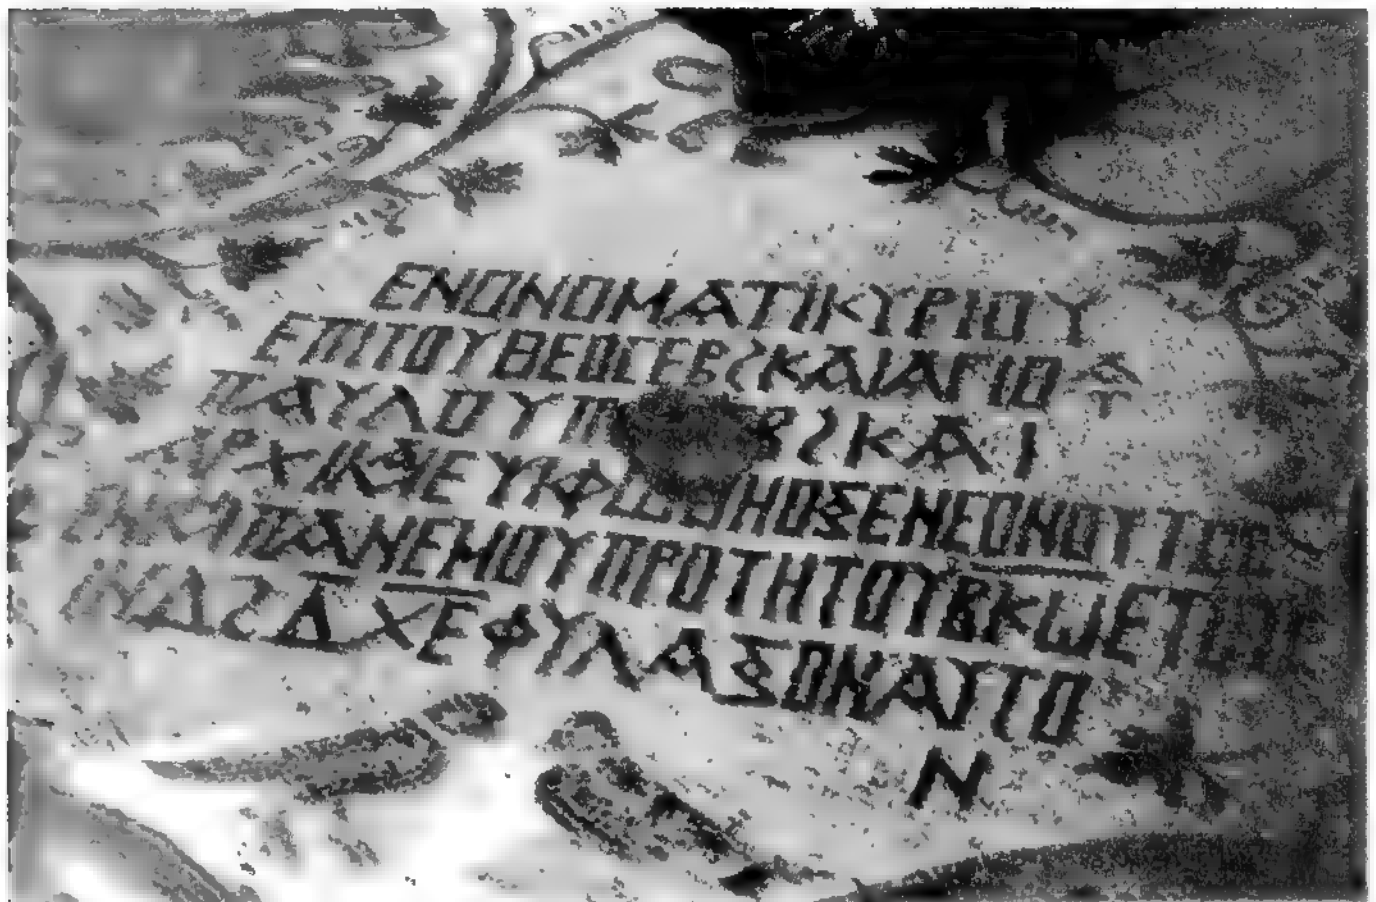 ΕΝΟΝΟΜΑΤΙΚΥΡΙΟΥ
ΕΠΙΤΟΥΘΕΟϹΕΒSΚΑΙΑΓΙΟ
ΠΑΥΛΟΥΠ ΒSΚΑΙ
ΑΡΧΙΚΑΙΕΥΚΦ ΘΗΟΞΕΝΕΟΝΟΥΤΟϹ
ΠΑΝΕΜΟΥΠΡΟΤΗΤΟΥΒΚΩΕΤΟΥ
ΙΝΔSΔΧΕΦΥΛΑΞΟΝΑΥΤΟ
Ν